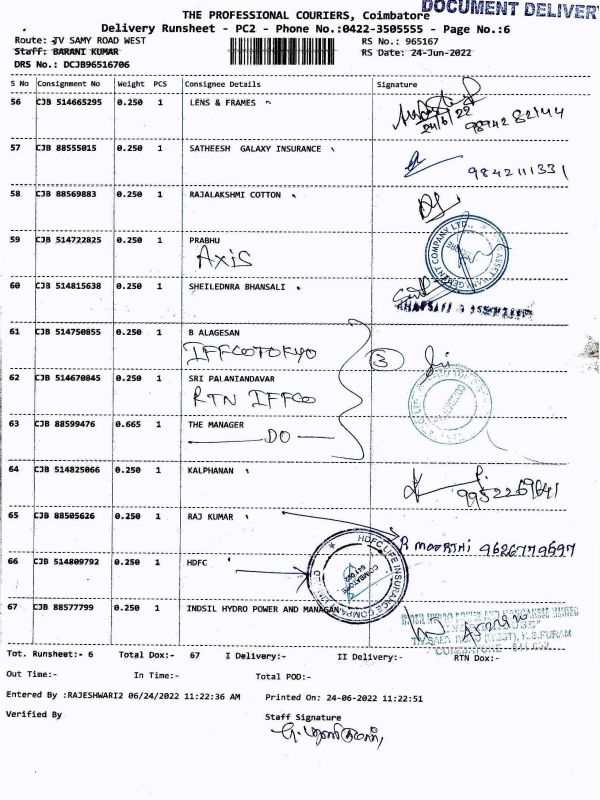 DOCUMENT DELIVERY
THE PROFESSIONAL COURIERS, Coimbatore
Delivery Runsheet - PC2 - Phone No.:0422-3505555 - Page No.:6
Route: TV SAMY ROAD WEST RS No.: 965167
Staff: BARANI KUMAR RS Date: 24-Jun-2022
DRS No.: DCJB96516706
S No Consignment No Weight PCS Consignee Details Signature
56 CJB 514665295 0.250 1 LENS & FRAMES
24/6/22 9894282144
57 CJB 88555015 0.250 1 SATHEESH GALAXY INSURANCE 9842111331
58 CJB 88569883 0.250 1 RAJALAKSHMI COTTON
59 CJB 514722825 0.250 1 PRABHU
AXIS
60 CJB 514815638 0.250 1 SHEILEDNRA BHANSALI
61 CJB 514750855 0.250 1 B ALAGESAN
IFFCOTOKYO 3
62 CJB 514670845 0.250 1 SRI PALANIANDAVAR
RTN IFFCO
63 CJB 88599476 0.665 1 THE MANAGER
DO
64 CJB 514825066 0.250 1 KALPHANAN
65 CJB 88505626 0.250 1 RAJ KUMAR
R MOORTHI 9626779597
66 CJB 514809792 0.250 1 HDFC
HDFC LIFE INSURANCE COMPANY LIMITED
COIMBATORE
67 CJB 88577799 0.250 1 INDSIL HYDRO POWER AND MANGAN
Tot. Runsheet:- 6 Total Dox:- 67 I Delivery:- II Delivery:- RTN Dox:-
Out Time:- In Time:- Total POD:-
Entered By :RAJESHWARI2 06/24/2022 11:22:36 AM Printed On: 24-06-2022 11:22:51
Verified By Staff Signature